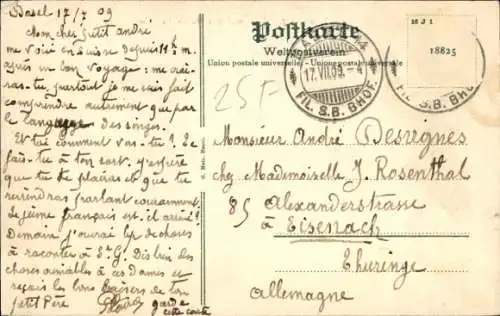 Basel 17/7 09
Mon cher petit André
me voici en Suisse depuis 11h m.
après un bon voyage: me croi-
ras-tu, partout je me suis fait
comprendre autrement que par
le langage des singes.
Et toi comment vas-tu? Te
fais-tu à ton sort, j'espère
que tu te plairas et que tu
reviendras parlant couramment.
Le jeune français est-il arrivé?
Demain j'aurai bp de choses
à raconter à Dis bien des
choses aimables à ces dames et
reçois les bons baisers de ton
petit Père
garde
cette carte
Postkarte
Weltpostverein
Union postale universelle. - Unione postale universale
17.VII.09.-4
FIL. S.B. BHOF.
FIL. S.B. BHOF.
MJI
18825
25F
Monsieur André Desvignes
chez Mademoiselle J. Rosenthal
85 Alexanderstrasse
à Eisenach
Thuringe
Allemagne